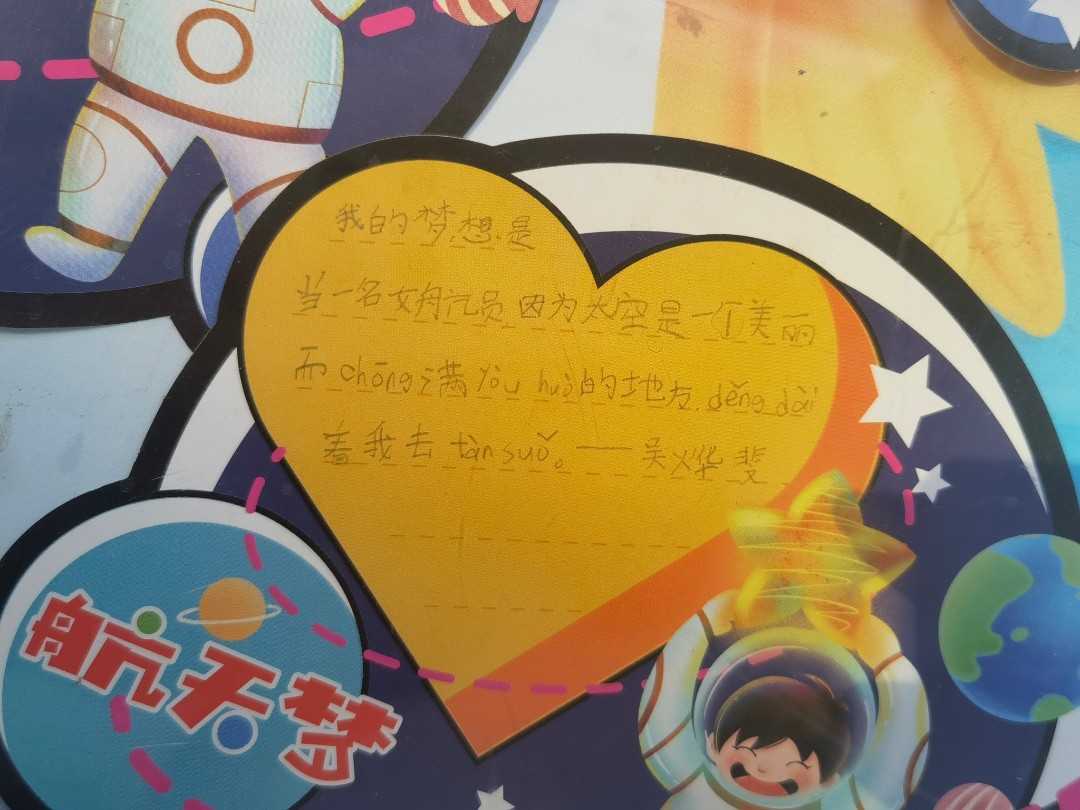 我的梦想是
当一名女航员因为太空是一个美丽
而chōng满yòu huò的地方,děng dài
着我去tàn suǒ。——吴烨斐
航天梦